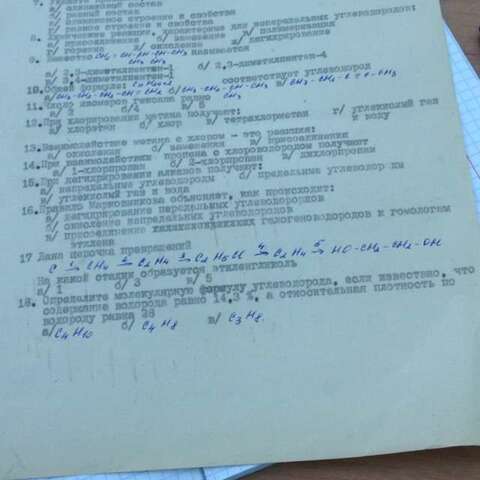 а/ одинаковый состав
б/ разный состав
в/ одинаковое строение и свойства
г/ разное строение и свойства
8. Химические реакции, характерные для непредельных углеводородов:
а/ присоединения б/ замещение в/ полимеризация
г/ горение д/ окисление е/ дегидрирование
9. Вещество называется
а/ 2,3-диметилпентен-1 б/ 2,3-диметилпентен-4
в/ 3,4-диметилпентен-1
10. Общей формуле: соответствует углеводород
11. Число изомеров гексана равно
а/ 2 б/4 в/ 5
12. При хлорировании метана получают:
а/ хлорэтан б/ хлор в/ тетрахлорметан г/ углекислый газ
и воду
13. Взаимодействие метана с хлором - это реакция:
а/ окисления б/ замещения в/ присоединения
14. При взаимодействии пропена с хлороводородом получают
а/ 1-хлорпропан б/ 2-хлорпропан в/ дихлорпропан
15. При дегидрировании алканов получают:
а/ непредельные углеводороды б/ предельные углеводороды
в/ углекислый газ и вода
16. Правило Марковникова объясняет, как происходит:
а/ дегидрирование предельных углеводородов
б/ окисление непредельных углеводородов
в/ присоединение галогеноводородов к гомологам
этилена
17 Дана цепочка превращений
C 1→ CH4 2→ C2H4 3→ C2H5Cl 4→ C2H4 5→ HO-CH2-CH2-OH
На какой стадии образуется этиленгликоль
а/ 1 б/ 3 в/ 5
18. Определите молекулярную формулу углеводорода, если известно, что
содержание водорода равно 14,3 %, а относительная плотность по
водороду равна 28
а/ C4H10 б/ C4H8 в/ C3H8.